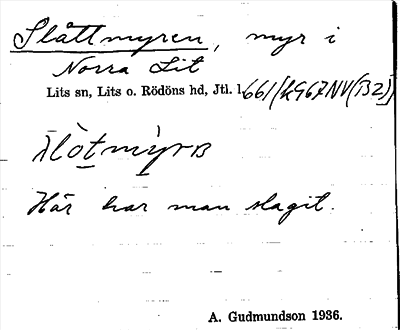 Slåttmyren, myr i
Norra Lit
Lits sn, Lits o. Rödöns hd, Jtl. l. 661/(kg67NV(B2))
Här har man slagit.
A. Gudmundson 1936.